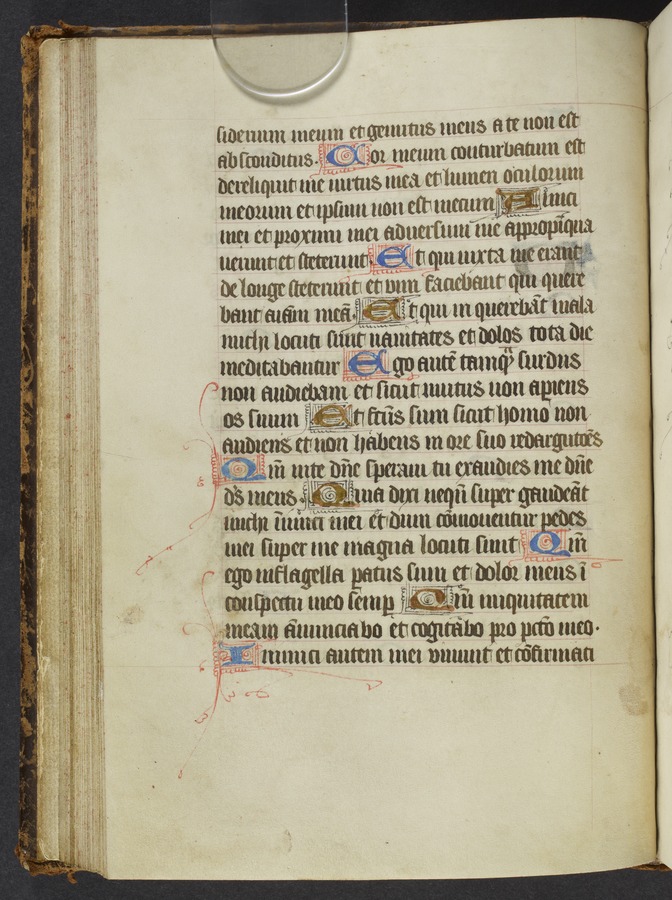 siderium meum et gemitus meus a te non est
absconditus. Cor meum conturbatum est
dereliquit me uirtus mea et lumen oculorum
meorum et ipsum non est mecum Amici
mei et proximi mei aduersum me appropinqua
uerunt et steterunt Et qui iuxta me erant
de longe steterunt et vim faciebant qui quere
bant aīam meā. Et qui inquerebāt mala
michi locuti sūt uanitates et dolos tota die
meditabantur Ego autē tamqᷓ surdus
non audiebam et sicut mutus non aperiens
os suum Et fc̄us sum sicut homo non
audiens et non habens in ore suo redargutōēs
Qm̄ in te dn̄e speraui tu exaudies me dn̄e
ds̄ meus. Quia dixi neqn̄ super gaudeāt
michi inimici mei et dum cōmouentur pedes
mei super me magna locuti sunt Qm̄
ego in flagella paratus sum et dolor meus ī
conspectu meo semꝑ Qm̄ iniquitatem
meam ānunciabo et cogitabo pro pctō meo.
Inimici autem mei viuunt et cōfirmati